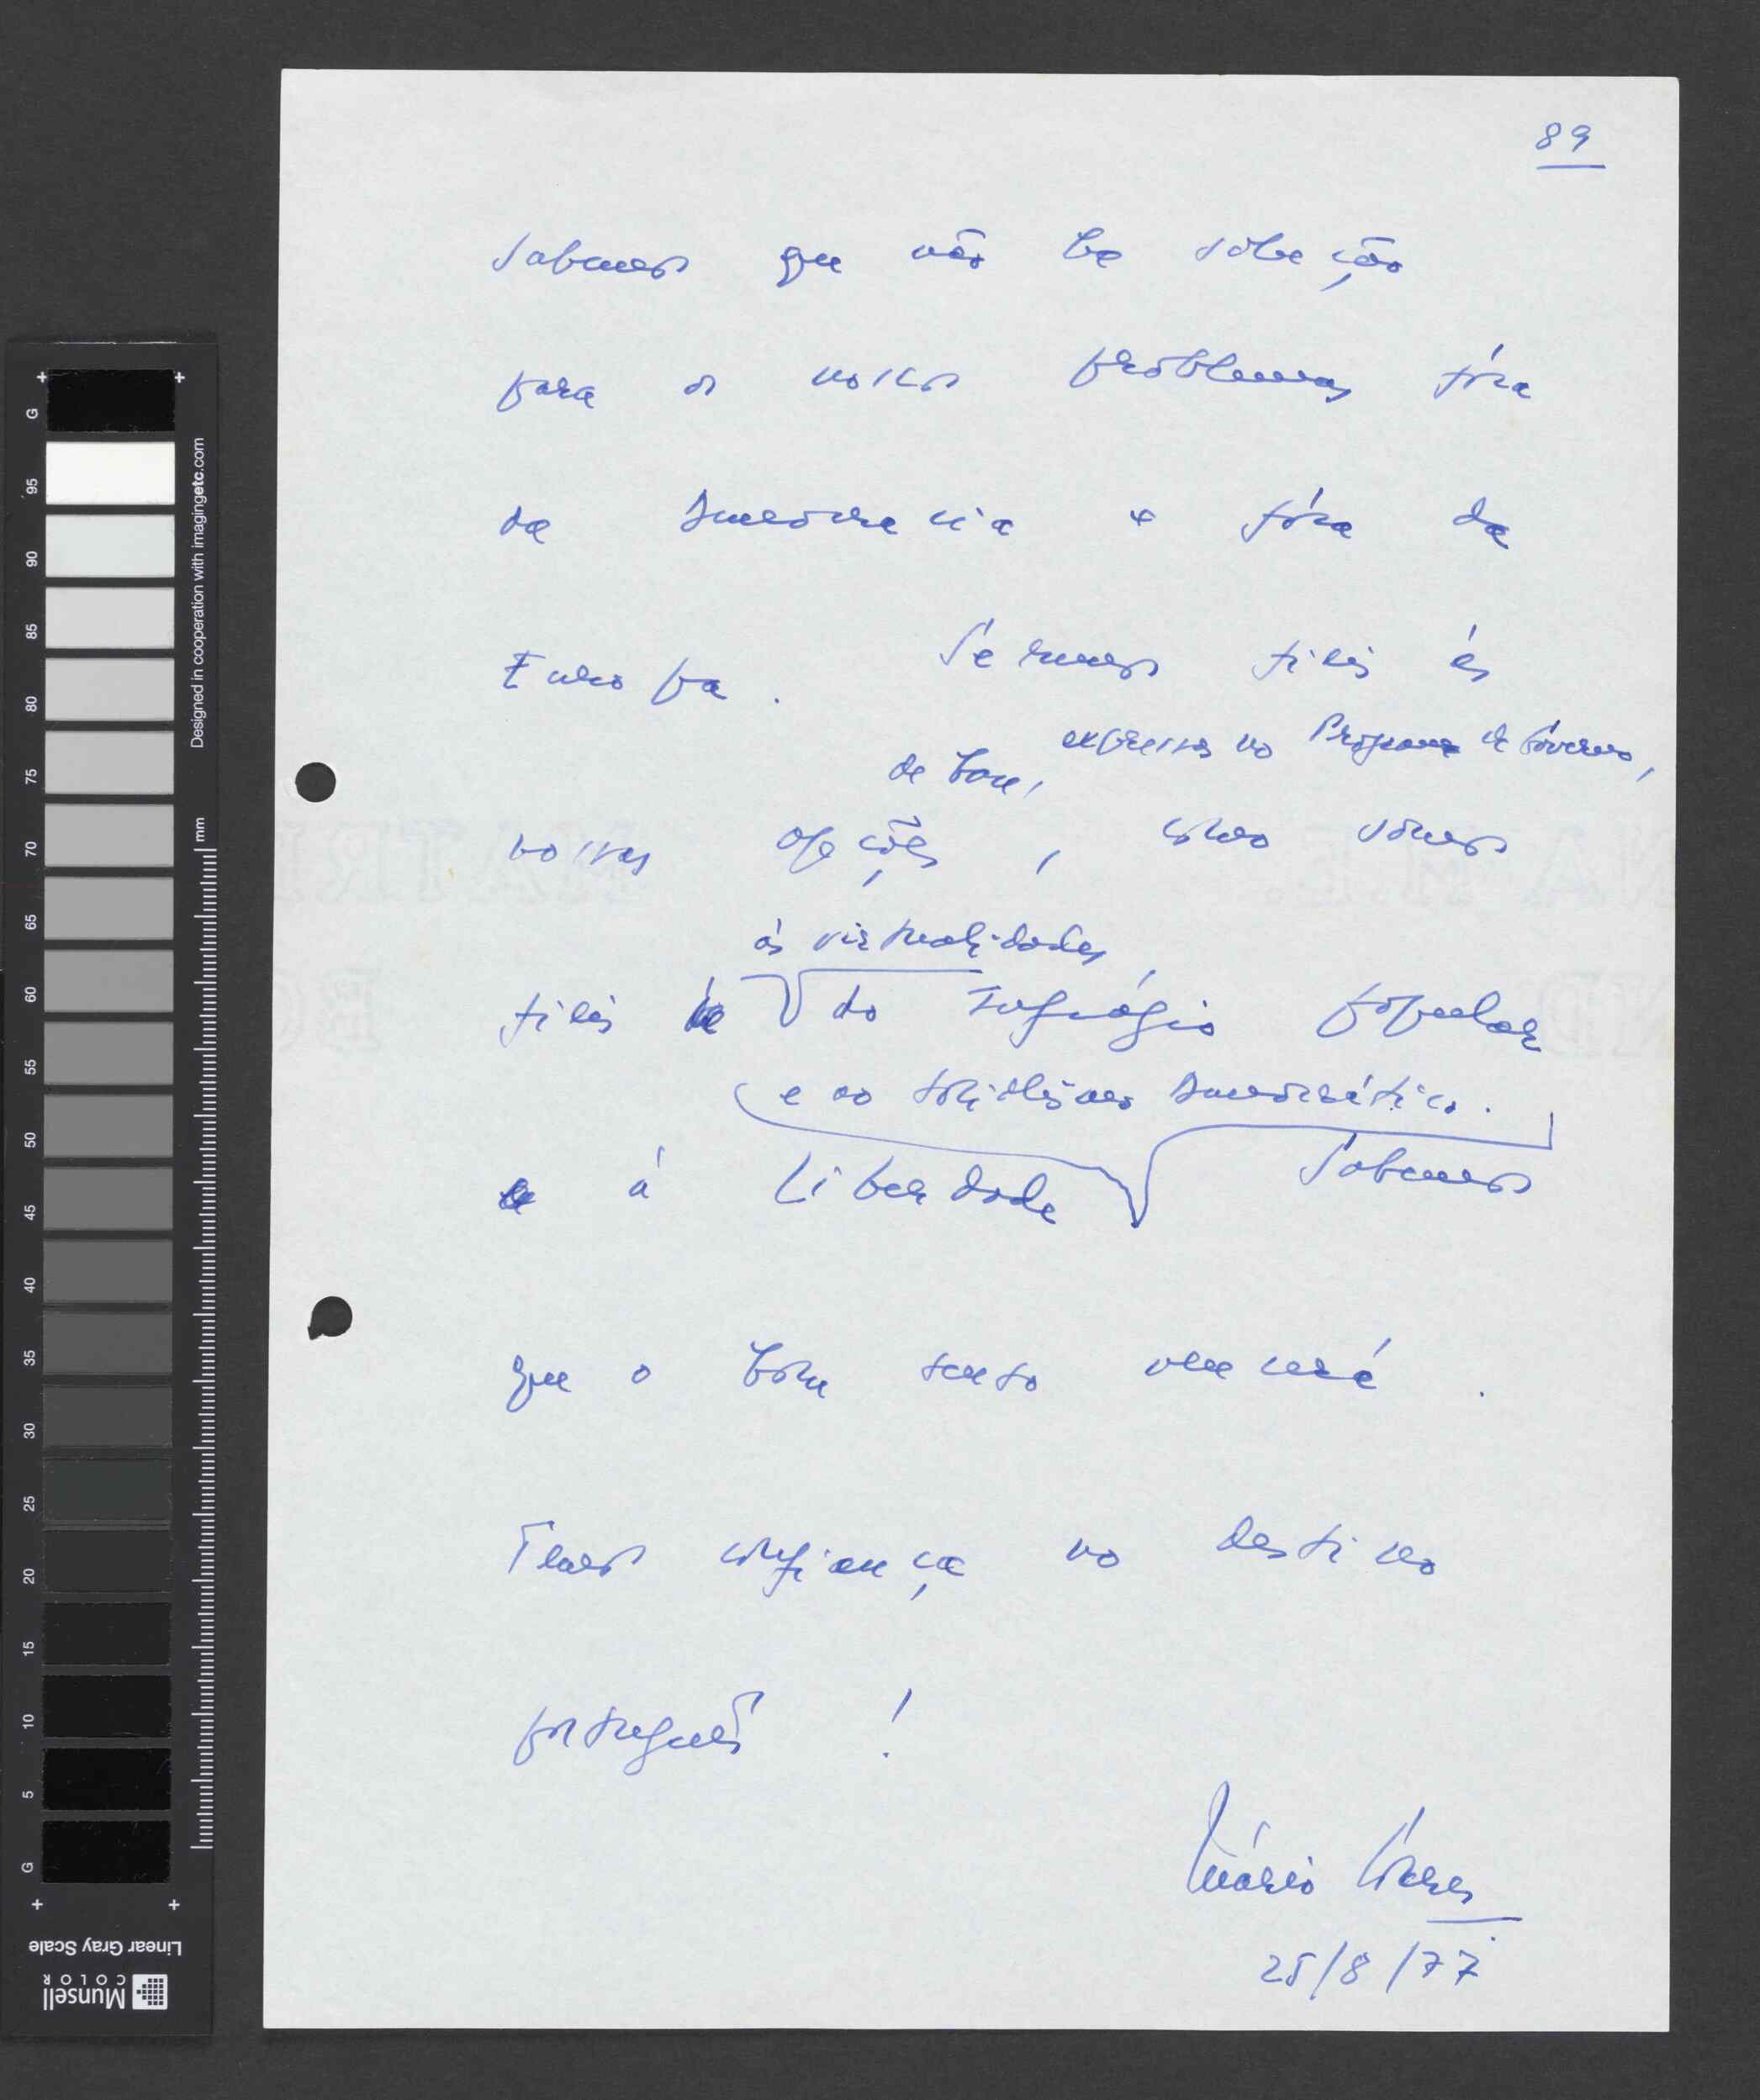 89
Sabemos que não há solução
para os nossos problemas fóra
da Democracia e fóra da
Europa. Seremos fiéis ás
de base, expressas no Programa de Govêrno,
nossas opções, como somos
ás virtualidades,
fiéis do sufrágio popular
e ao socialismo democrático.
á Liberdade Sabemos
que o bom senso vencerá.
Temos confiança no destino
português!
Mário Soares
25/8/77
G
95
90
85
80
75
70
65
60
55
50
45
40
35
30
25
20
15
10
5
G
mm
Designed in cooperation with imagingetc.com
Linear Gray Scale
Munsell
COLOR